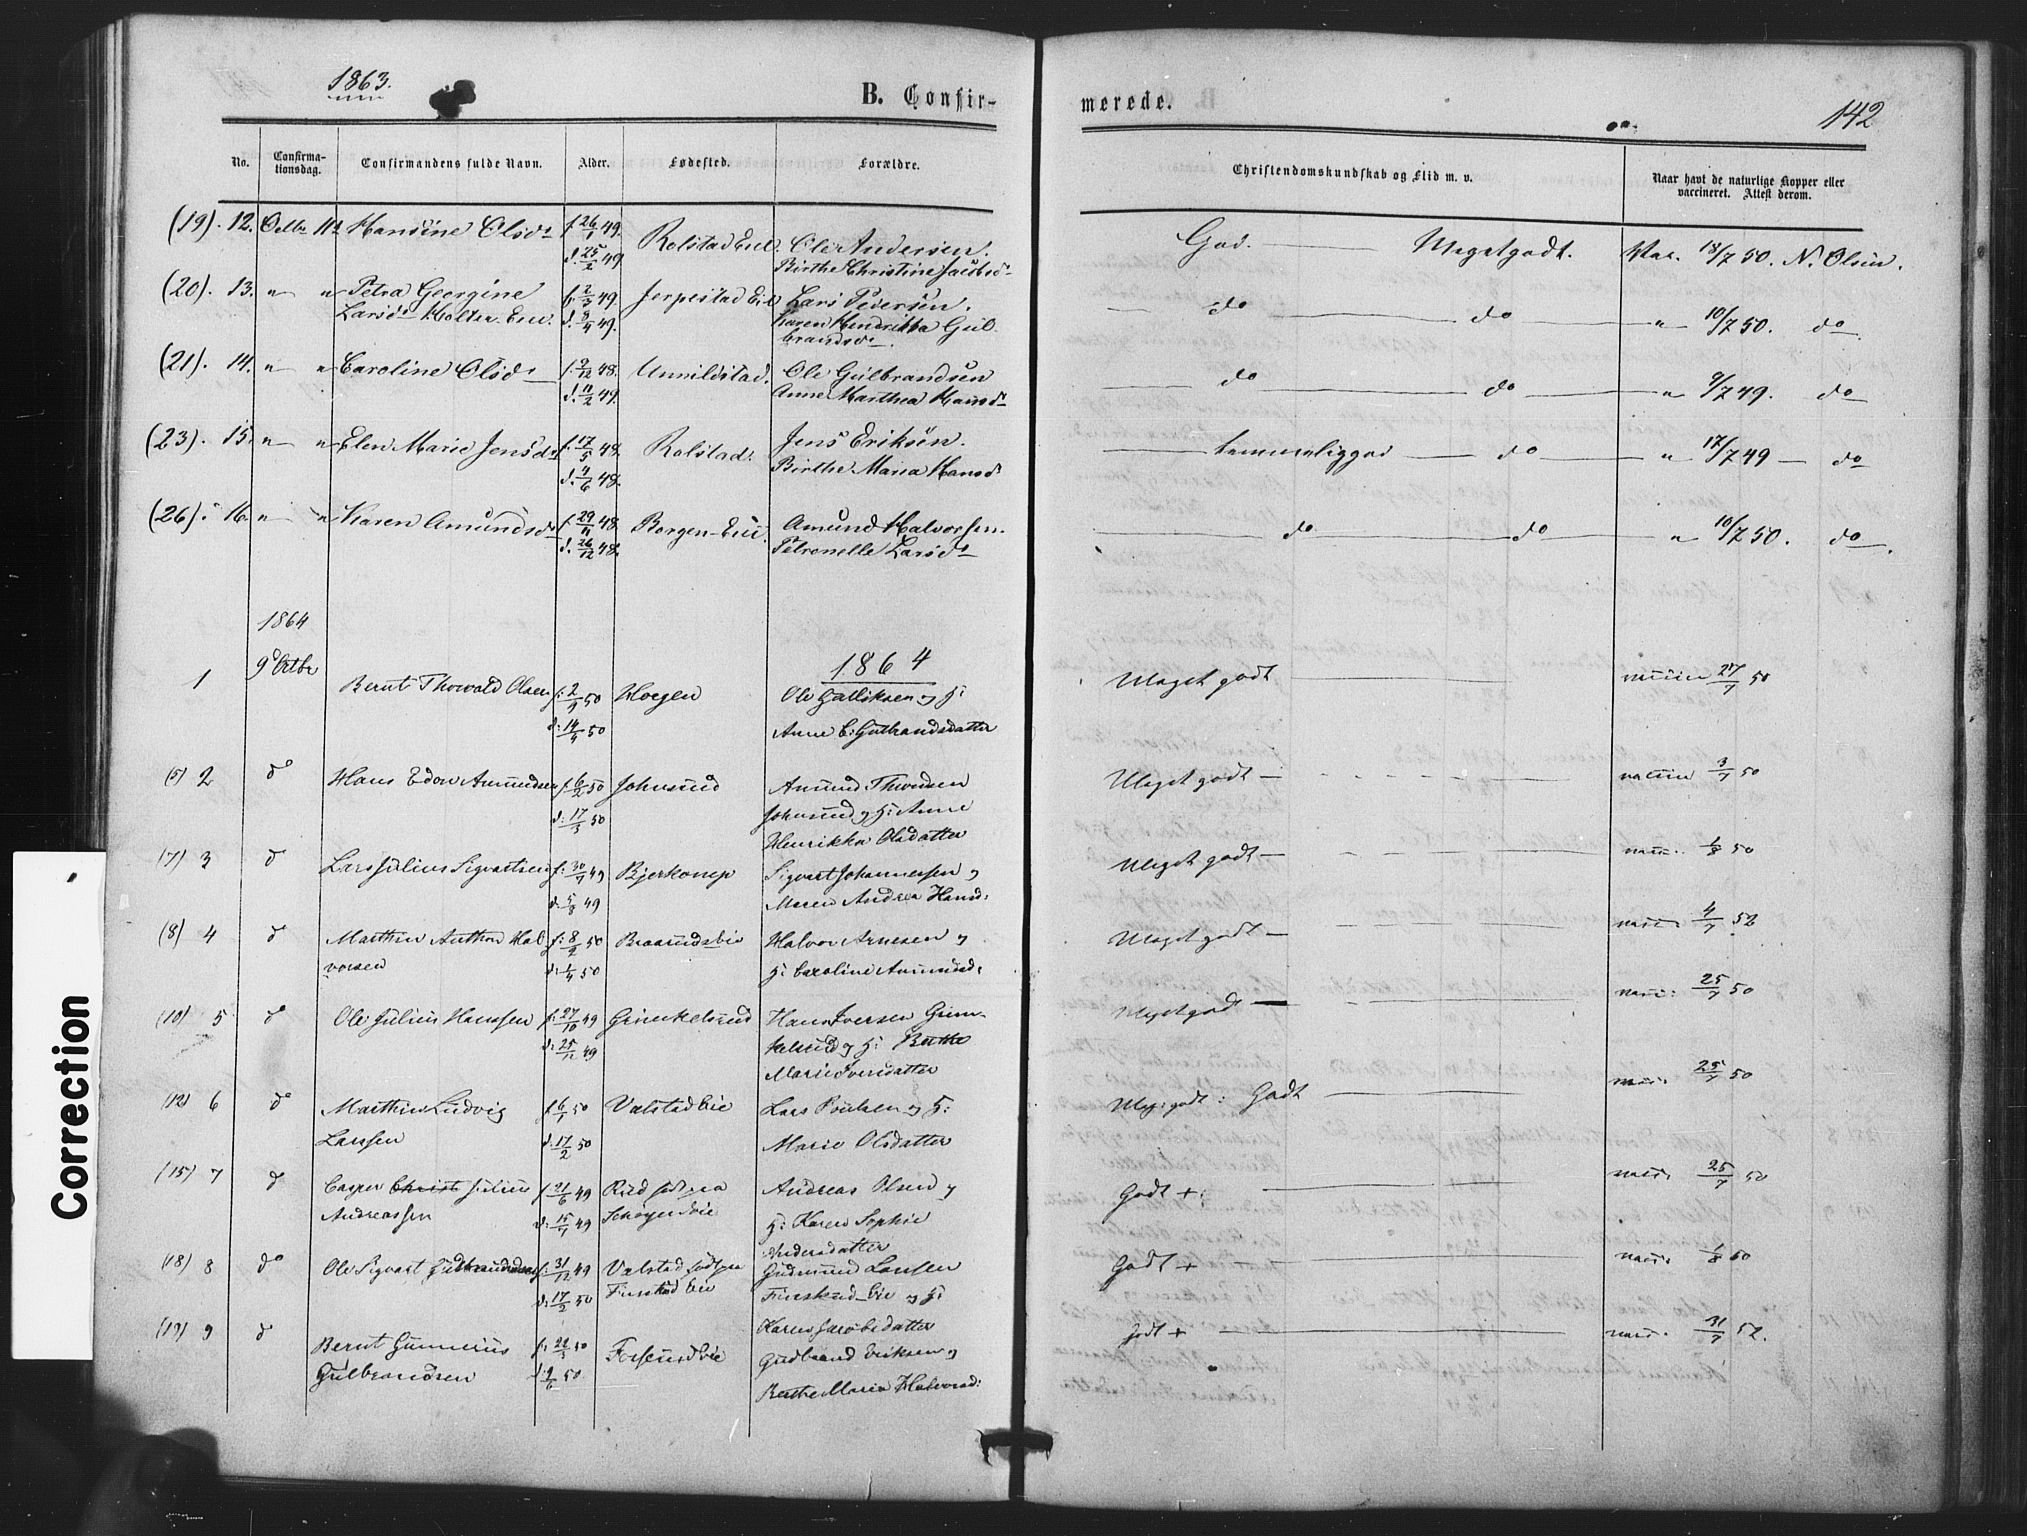 1863.
B. Confir-
merede.
142
No.
Confirma-
tionsdag.
Confirmandens fulde Navn.
Alder.
Fødested.
Forældre.
Christendomskundskab og Flid m. v.
Naar havt de naturlige Kopper eller
vaccineret. Attest derom.
(19). 12. Octbr 11te Hansine Olsdr f. 26/1 49. Rolstad Eie. Ole Andersen. God. Megetgodt. Vac. 18/7 50. N. Olsen.
d. 25/2 49 Birthe Christine Jacobsdr
(20). 13. " " Petra Georgine f. 2/3 49. Jerpestad Eie Lars Pedersen. do do " 10/7 50. do
Larsdr Holter Eie. d. 8/4 49. Karen Hendrikka Gul-
brandsdr.
(21). 14. " " Caroline Olsdr f. 9/12 48. Unnildstad. Ole Gulbrandsen do do " 9/7 49. do
d. 11/2 49. Anne Marthea Hansdr
(23). 15. " " Elen Marie Jensdr f. 17/5 48. Rolstad. Jens Eriksen. temmeliggod do " 17/7 49 do
d. 4/6 48. Birthe Maria Hansdr
(26). 16. " " Karen Amundsdr f. 29/11 48. Borgen-Eie. Amund Halvorsen. do do " 10/7 50. do.
d. 26/12 48. Petronelle Larsdr
1864
1864
1 9d Octbr Bernt Thorvald Olsen f: 2/9 50 Horgen Ole Gulliksen og H: Meget godt 27/7 50
50 Anne C: Gulbrandsdatter
(5) 2 do Hans Edon Amundsen f. 6/2 50 Johnsrud Amund Thorsdsen Meget godt 3/7 50
d: 17/3 50 Johnsrud og H: Anne
Henrikka Olsdatter
(7) 3 do Lars Julius Sigvartsen f: 30/7 49 Bjerkenep Sigvart Johannessen og Meget godt 1/8 50
d: 5/8 49 Maren Andrea Hansd:
(8) 4 do Marthin Anthon Hal f: 8/2 50 Braarudseie Halvor Arnesen og Meget godt 4/7 52
vorsen d: 1/4 50 H: Caroline Amunds:
(10) 5 do Ole Julius Hanssen f: 27/10 49 Grinkelsrud Hans Iversen Grin- Meget godt 25/7 50
d: 25/11 49 kelsrud og H: Berthe
Marie Iversdatter
(12) 6 do Marthin Ludvig f. 6/1 50 Valstad Eie Lars Poulsen og H: Meget godt: Godt 25/7 50
Larssen d: 17/2 50 Marie Olsdatter
(15) 7 do Casper Christ Julius f. 21/6 49 Rud Andreas Olsen og Godt +: 25/7 50
Andreassen d: 15/7 49 H: Karen Sophie
Andersdatter
(18) 8 do Ole Sigvart f: 31/12 49 Valstad Gudmund Larssen Godt + 1/8 50
d: 17/2 50 Finstad Eie Eie og H:
Karen Jacobsdatter
(19) 9 do Bernt Gunnerius f: 22/3 50 Fosserud Eie Gudbrand Eriksen og Godt + 31/7 52.
Gulbrandsen d: 50 Berthe Maria Halvorsd:
Correction